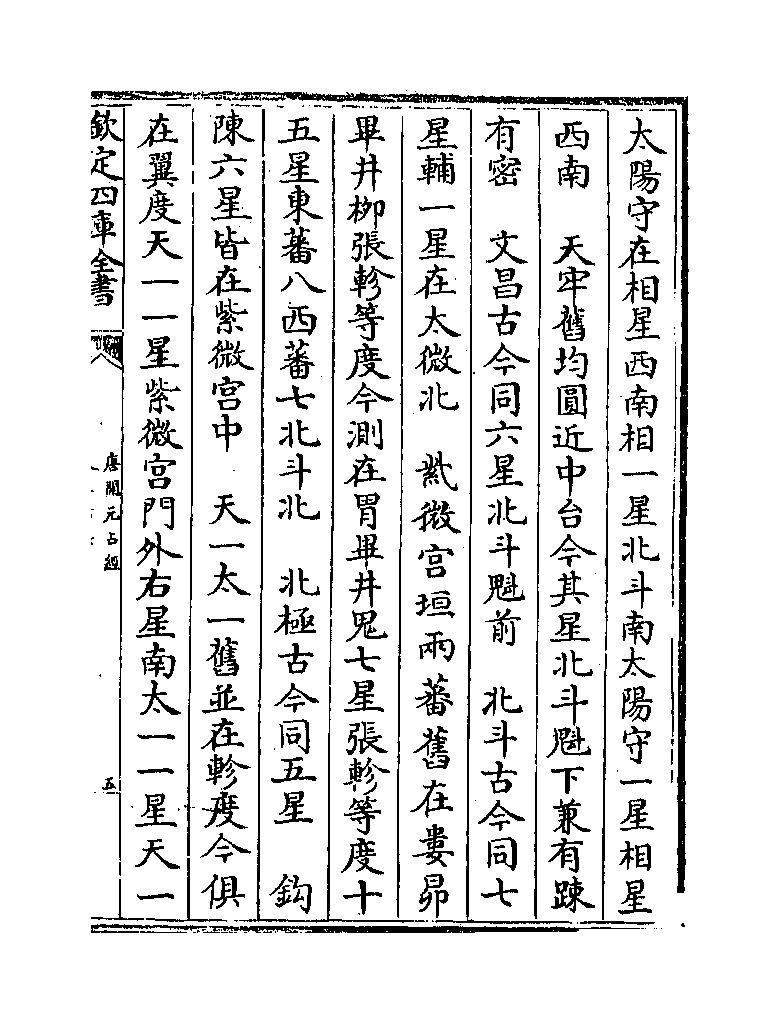 太陽守在相星西南相一星北斗南太陽守一星相星
西南　天牢舊均圓近中台今其星北斗魁下兼有踈
有密　文昌古今同六星北斗魁前　北斗古今同七
星輔一星在太微北　紫微宫垣兩蕃舊在婁昴
畢井栁張軫等度今測在胃畢井鬼七星張軫等度十
五星東蕃八西蕃七北斗北　北極古今同五星　鈎
陳六星皆在紫微宫中　天一太一舊並在軫度今俱
在翼度天一一星紫微宫門外右星南太一一星天一
欽定四庫全書
唐開元占經
五